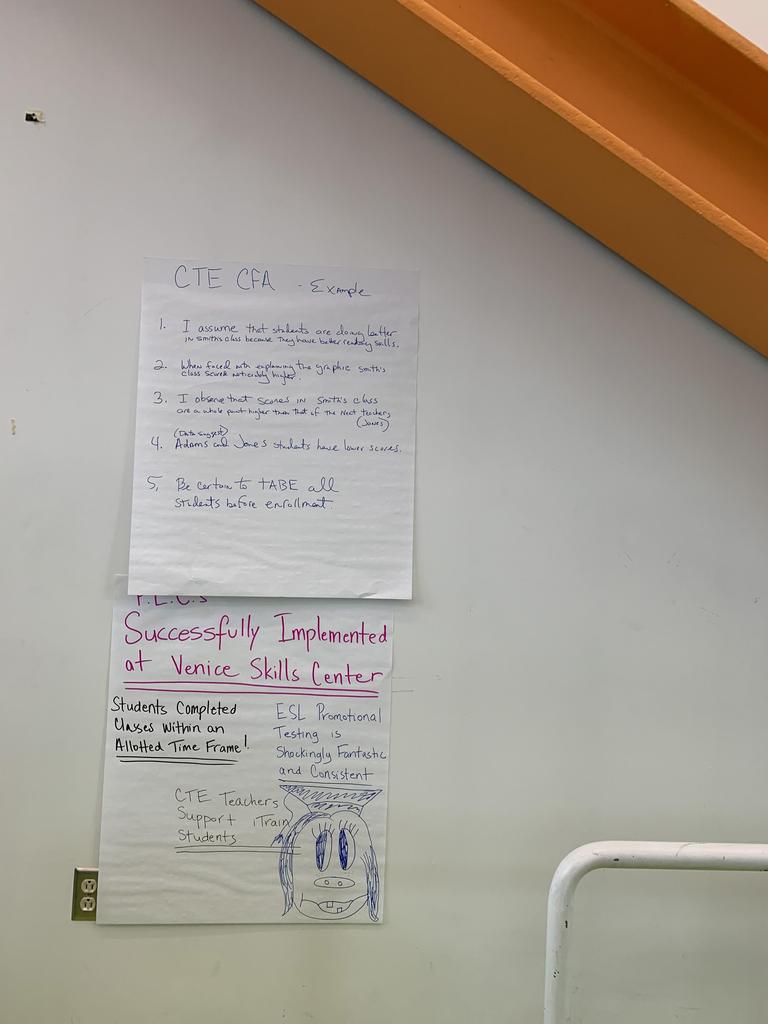 CTE CFA - Example
1. I assume that students are doing better
in Smith's class because they have better reading skills.
2. When faced with explaining the graphic Smith's
class scored noticibly higher.
3. I observe that scores in Smith's class
are a whole point higher than that of the next teachers
(Jones)
(Data suggest)
4. Adams and Jones students have lower scores.
5. Be certain to TABE all
students before enrollment.
P.L.C.s
Successfully Implemented
at Venice Skills Center
Students Completed
Classes Within an
Allotted Time Frame!
ESL Promotional
Testing is
Shockingly Fantastic
and Consistent
CTE Teachers
Support iTrain
Students